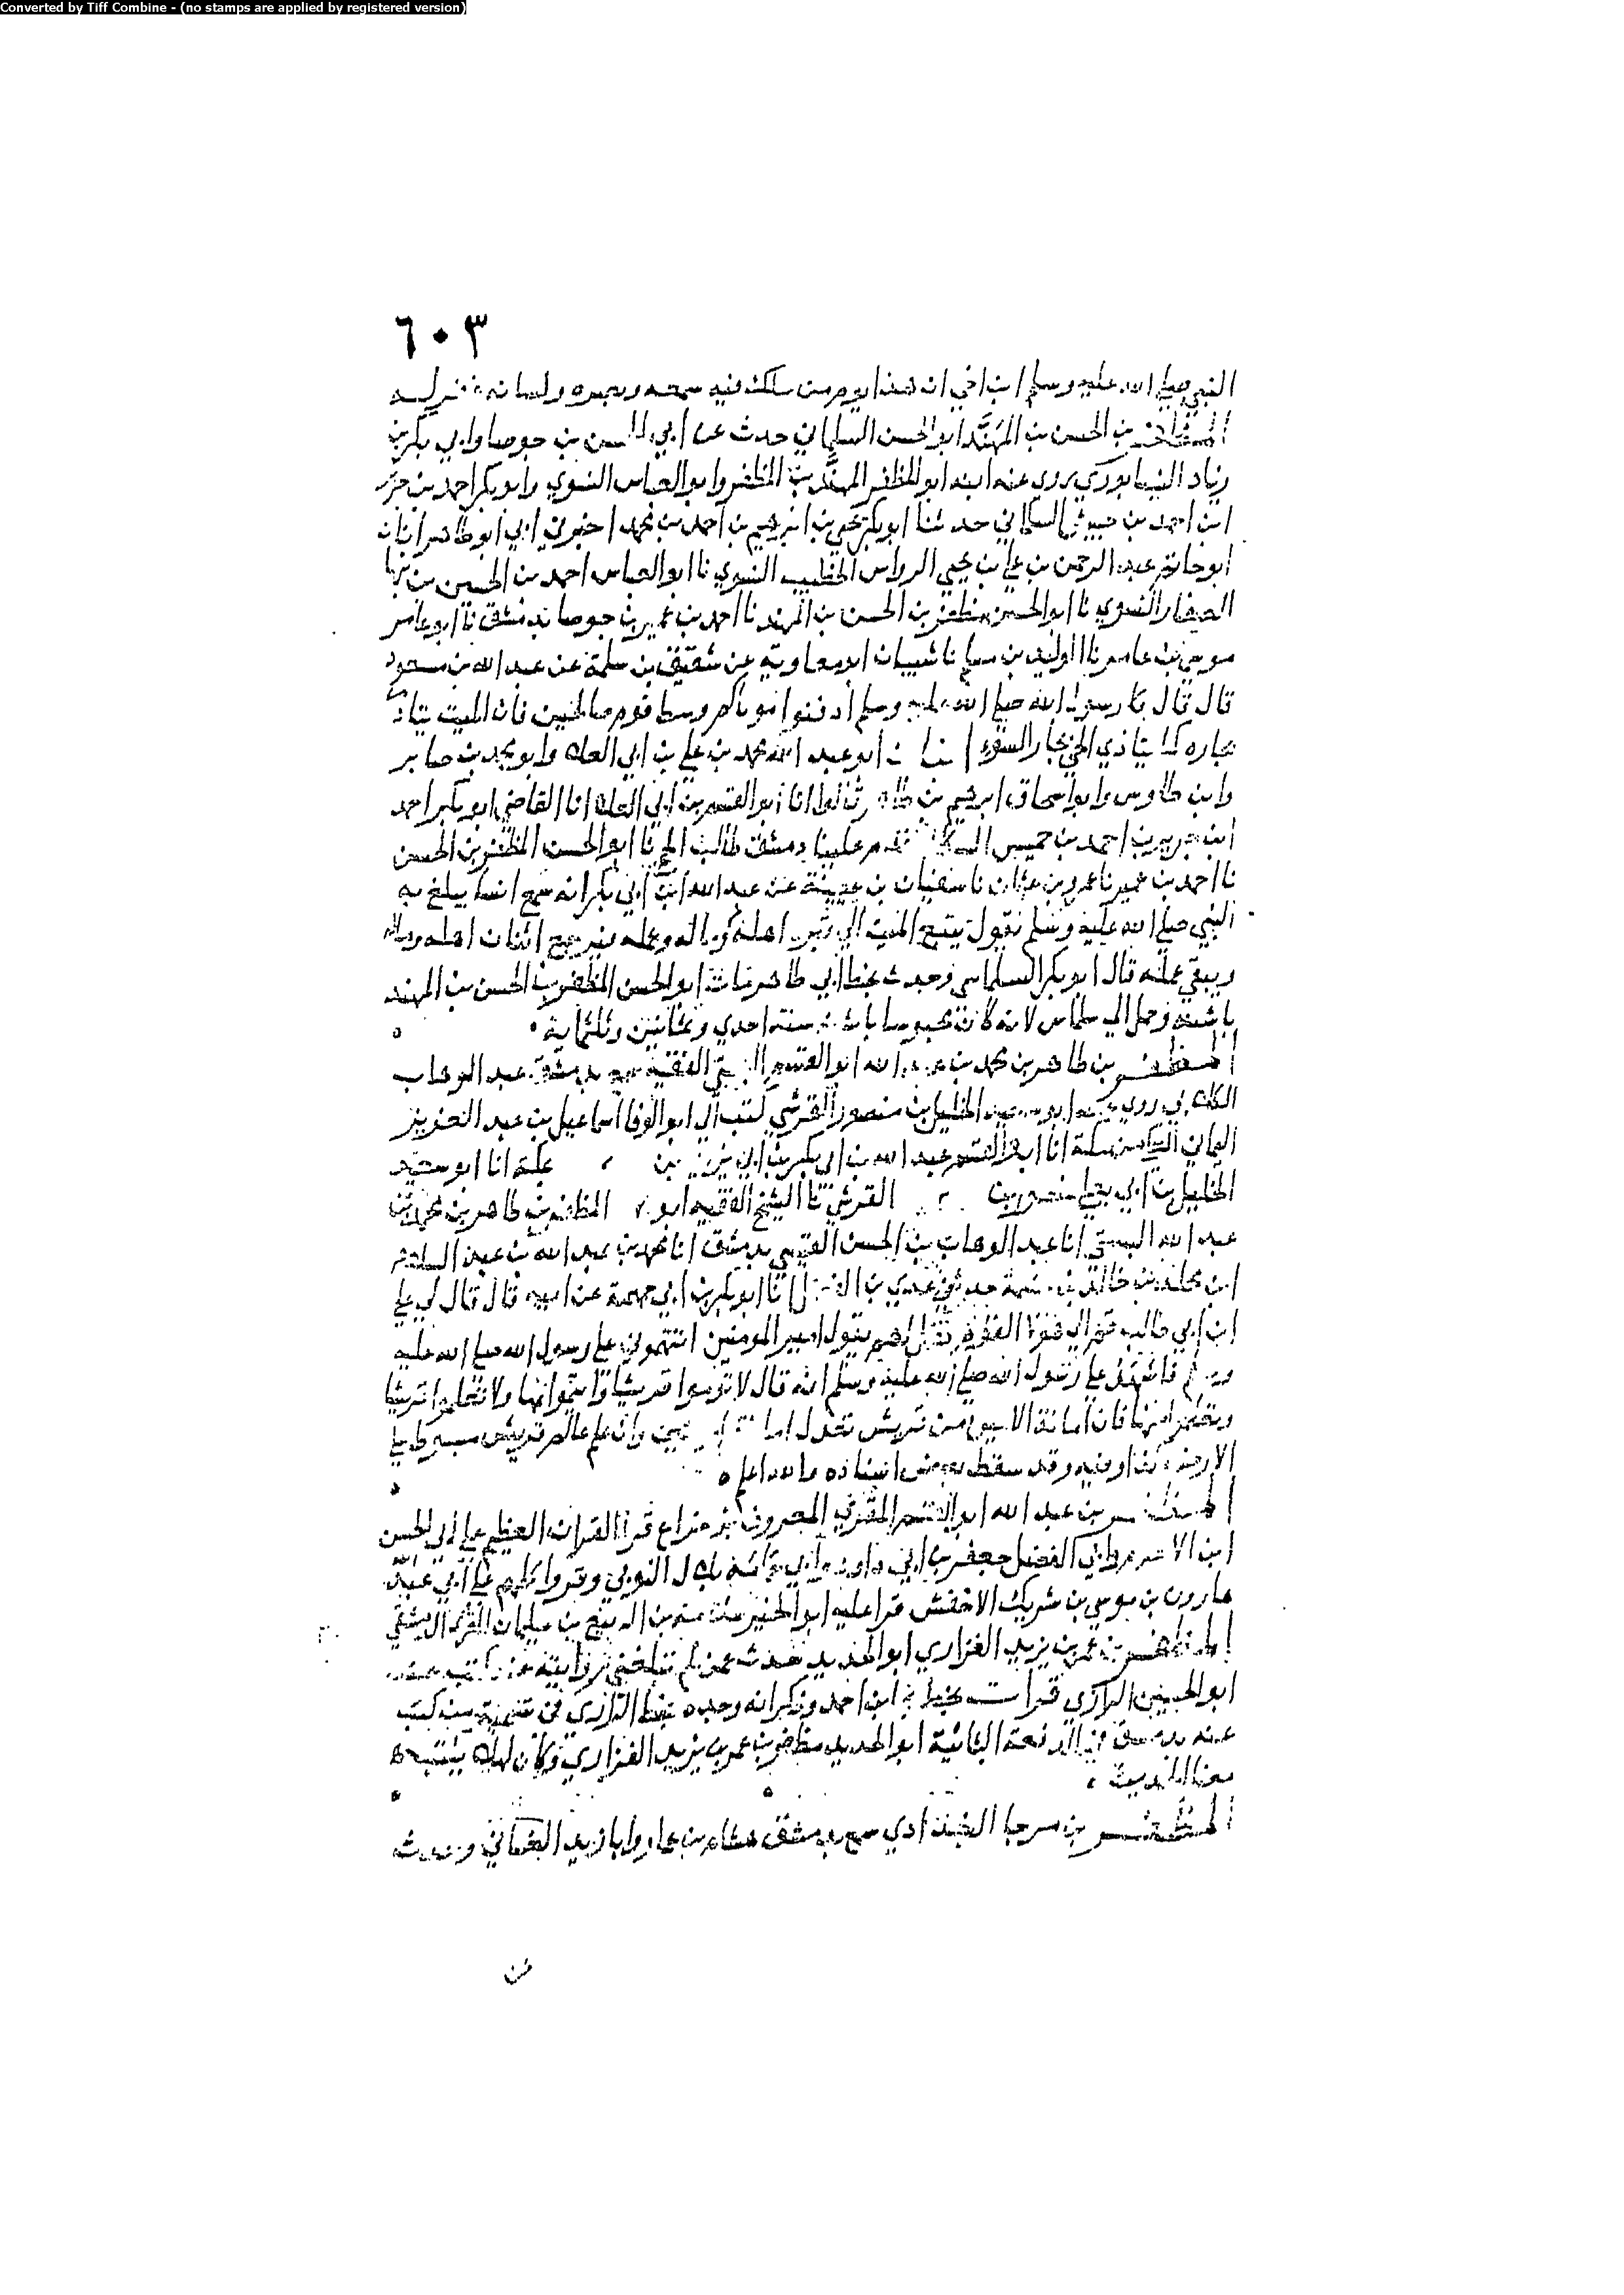 Converted by Tiff Combine - (no stamps are applied by registered version)
٦٠٣
النبي صلى الله عليه وسلم ابن اخي ان هذا يوم من ملك فيه سمعه وبصره ولسانه غفر له
المظفر بن الحسن بن المهند ابو الحسن السلماني حدث عن ابي الحسن بن جوصا وابي بكر بن
زياد النيسابوري روى عنه ابنه ابو المظفر المهند بن المظفر وابو العباس النسوي وابو بكر احمد بن جرير
ابن احمد بن خميس السلماني حدثنا ابو بكر يحيى بن ابرهيم بن احمد بن محمد اخبرني ابي ابو طاهر انبانا
ابو حاتم عبد الرحمن بن علي بن يحيى الرواس الخطيب النسوي نا ابو العباس احمد بن الحسين بن
الصفار النسوي نا ابو الحسين مظفر بن الحسن بن المهند نا احمد بن عمير بن جوصا بدمشق نا ابو عامر
موسى بن عامر نا الوليد بن مسلم نا شيبان ابو معاوية عن شقيق بن سلمة عن عبد الله بن مسعود
قال قال رسول الله صلى الله عليه وسلم ادفنوا موتاكم وسط قوم صالحين فان الميت يتاذى
بجاره كما يتاذى الحي بجار السوء ابو عبد الله محمد بن علي بن ابي العلا وابو محمد بن صابر
وابن طاوس وابو اسحاق ابرهيم بن طاهر قالوا انا ابو القسم بن ابي العلا انا القاضي ابو بكر احمد
ابن جرير بن احمد بن خميس قدم علينا دمشق طالب الحج نا ابو الحسن المظفر بن الحسن
نا احمد بن عمير نا عمرو بن عثمان نا سفيان بن عيينة عن عبد الله بن ابي بكر انه سمع انسا يبلغ به
النبي صلى الله عليه وسلم يقول يتبع الميت الى قبره اهله وماله وعمله فيرجع اثنان اهله وماله
ويبقى عمله قال ابو بكر السلماسي وجدت بخط ابي طاهر مات ابو الحسن المظفر بن الحسن بن المهند
باشنه وحمل الى سلماس لانه كان محبوسا سنة احدى وثمانين وثلثماية
المظفر بن طاهر بن محمد بن عبد الله ابو القسم البستي الفقيه سمع بدمشق عبد الوهاب
الكلابي روى عنه ابو سعيد الخليل بن منصور القرشي كتب الي ابو الوفا اسماعيل بن عبد العزيز
بمكة انا ابو القسم عبد الله بن ابي بكر بن ابي بن بمكة انا ابو سعيد
الخليل بن ابي يعلى منصور بن القرشي نا الشيخ الفقيه ابو المظفر بن طاهر بن محمد بن
عبد الله البستي انا عبد الوهاب بن الحسن بدمشق انا محمد بن عبد الله بن عبد السلام
ابن مخلد بن خالد بن حدثني عدي بن الفضل نا ابو بكر بن ابي جهمة عن ابيه قال قال لي علي
ابن ابي طالب يقول امير المومنين اتتهموني على رسول الله صلى الله عليه
وسلم فاشهد على رسول الله صلى الله عليه وسلم انه قال لا توموا قريشا وائتموا بها ولا تعلموا قريشا
وتعلموا منها فان امانة الامين من قريش تعدل امانة امينين وان علم عالم قريش مبسوط على
الارض كذا فيه وقد سقط بعض اسناده والله اعلم
المظفر بن عبد الله ابو القسم المقرئ المعروف قرا القران العظيم على ابي الحسن
ابن الاخرم وابي الفضل جعفر بن ابي داود وقروا كلهم على ابي عبد الله
هارون بن موسى بن شريك الاخفش قرا عليه ابو الخير سلامة بن الربيع بن سليمان المقرئ الدمشقي
المظفر بن عمر بن يزيد الفزاري ابو الحديد حدث عمن لم تبلغني روايته عنه كتب عنه
ابو الحسين الرازي قرات بخط ابن احمد وذكر انه وجده بخط الرازي في تسمية من كتب
عنه بدمشق في الدفعة الثانية ابو الحديد مظفر بن عمر بن يزيد الفزاري
معنا الحديث
المظفر بن مرجا البغدادي سمع بدمشق هشام بن عمار وابا زيد وحدث
عن